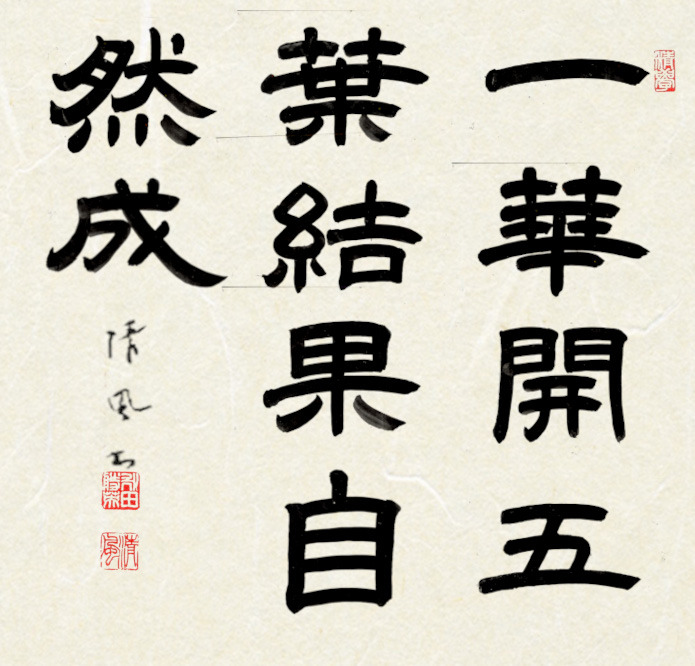 一華開五
葉結果自
然成
清風书